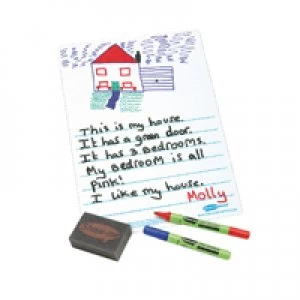 This is my house.
It has a green door.
It has 3 Bedrooms.
My BEDroom is all
Pink!
I like my house.
Molly